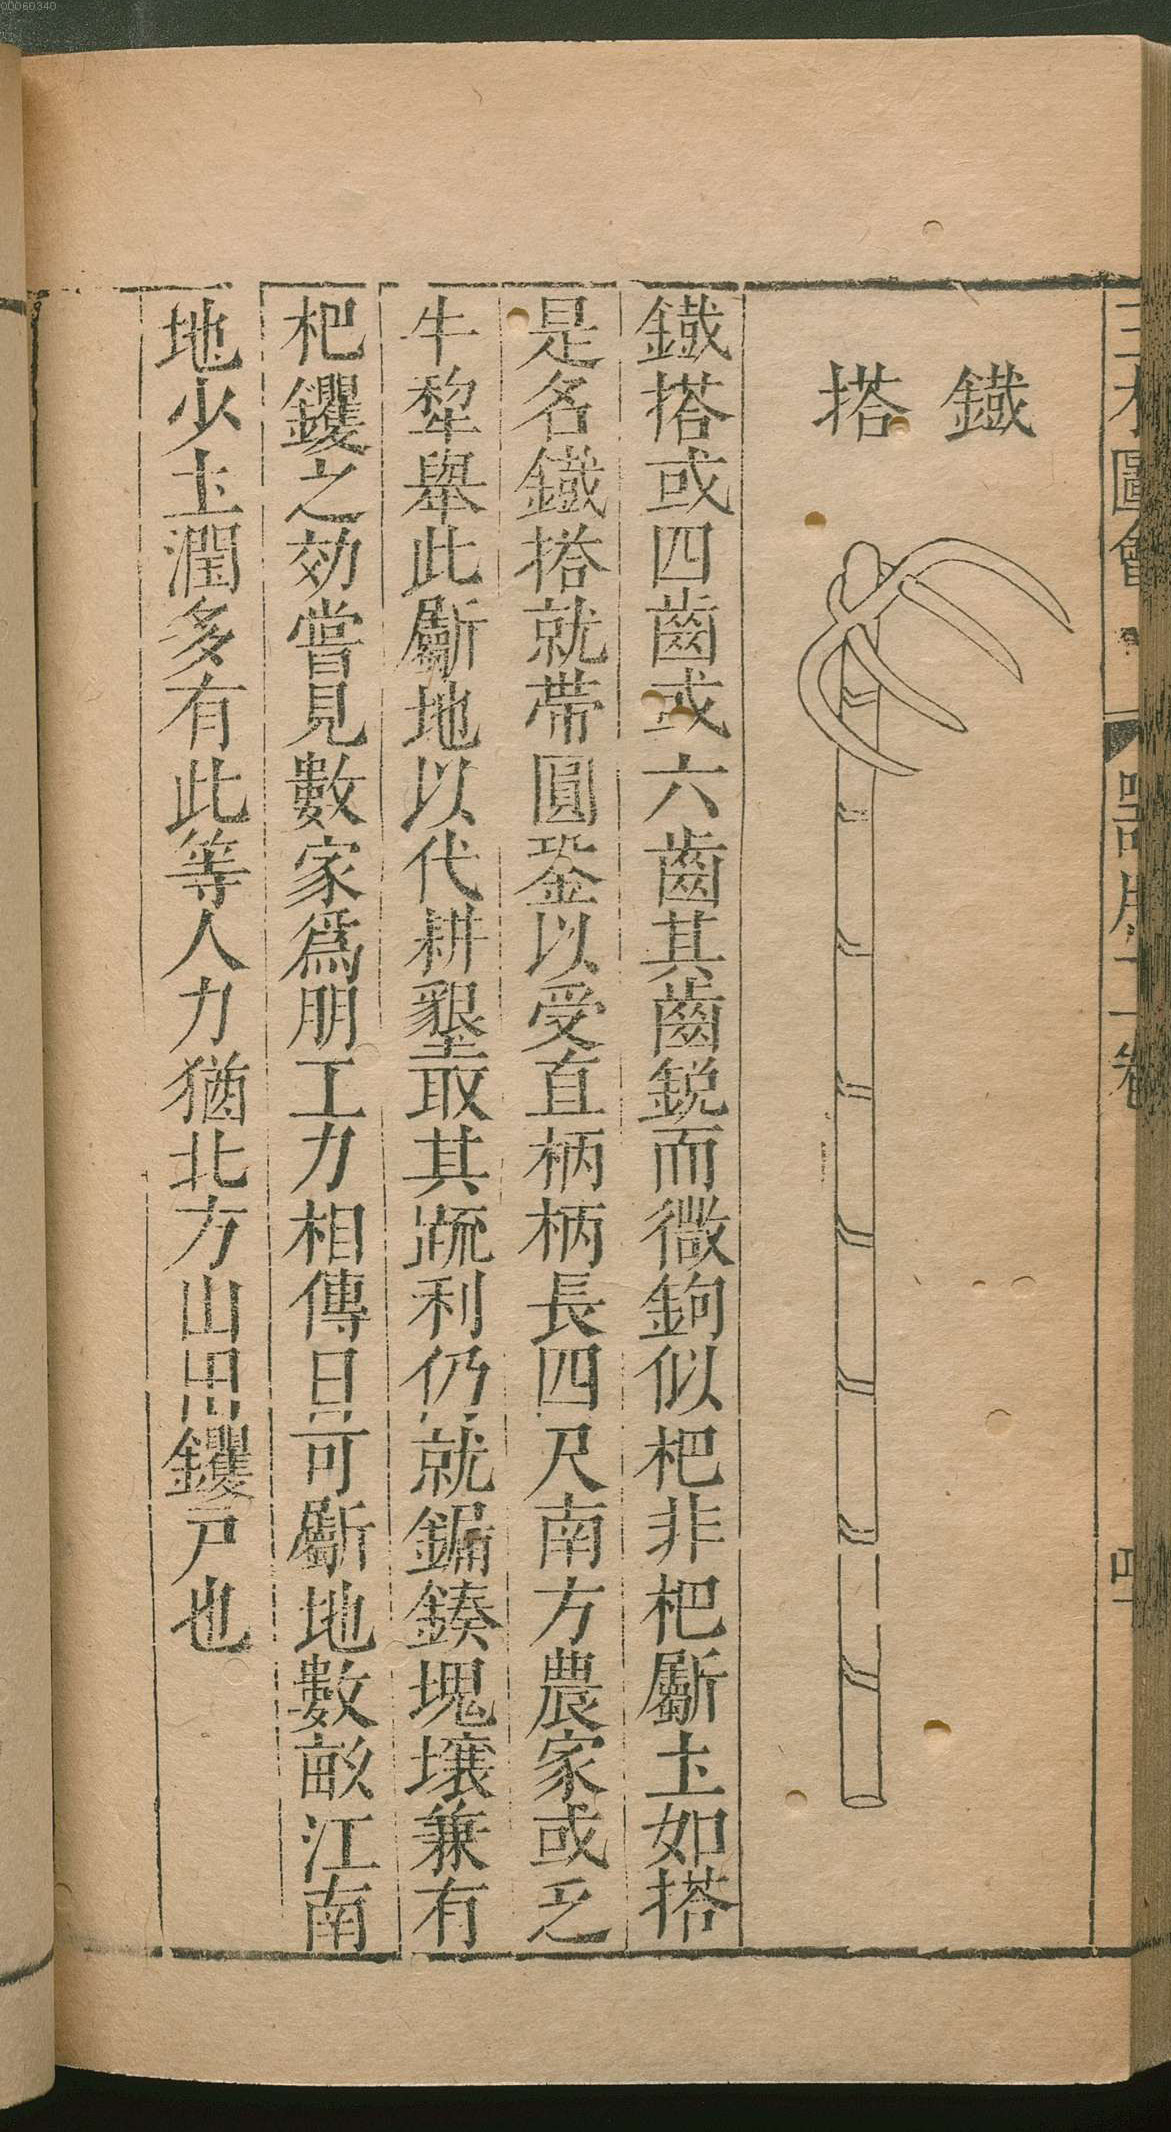 00060340
鐵搭
鐵搭或四齒或六齒其齒銳而微鉤似杷非杷斸土如搭
是名鐵搭就帶圓銎以受直柄柄長四尺南方農家或乏
牛犂舉此斸地以代耕墾取其疏利仍就鎉鍨塊壤兼有
杷钁之効嘗見數家爲朋工力相傳日可斸地數畝江南
地少土潤多有此等人力猶北方山田钁戸也